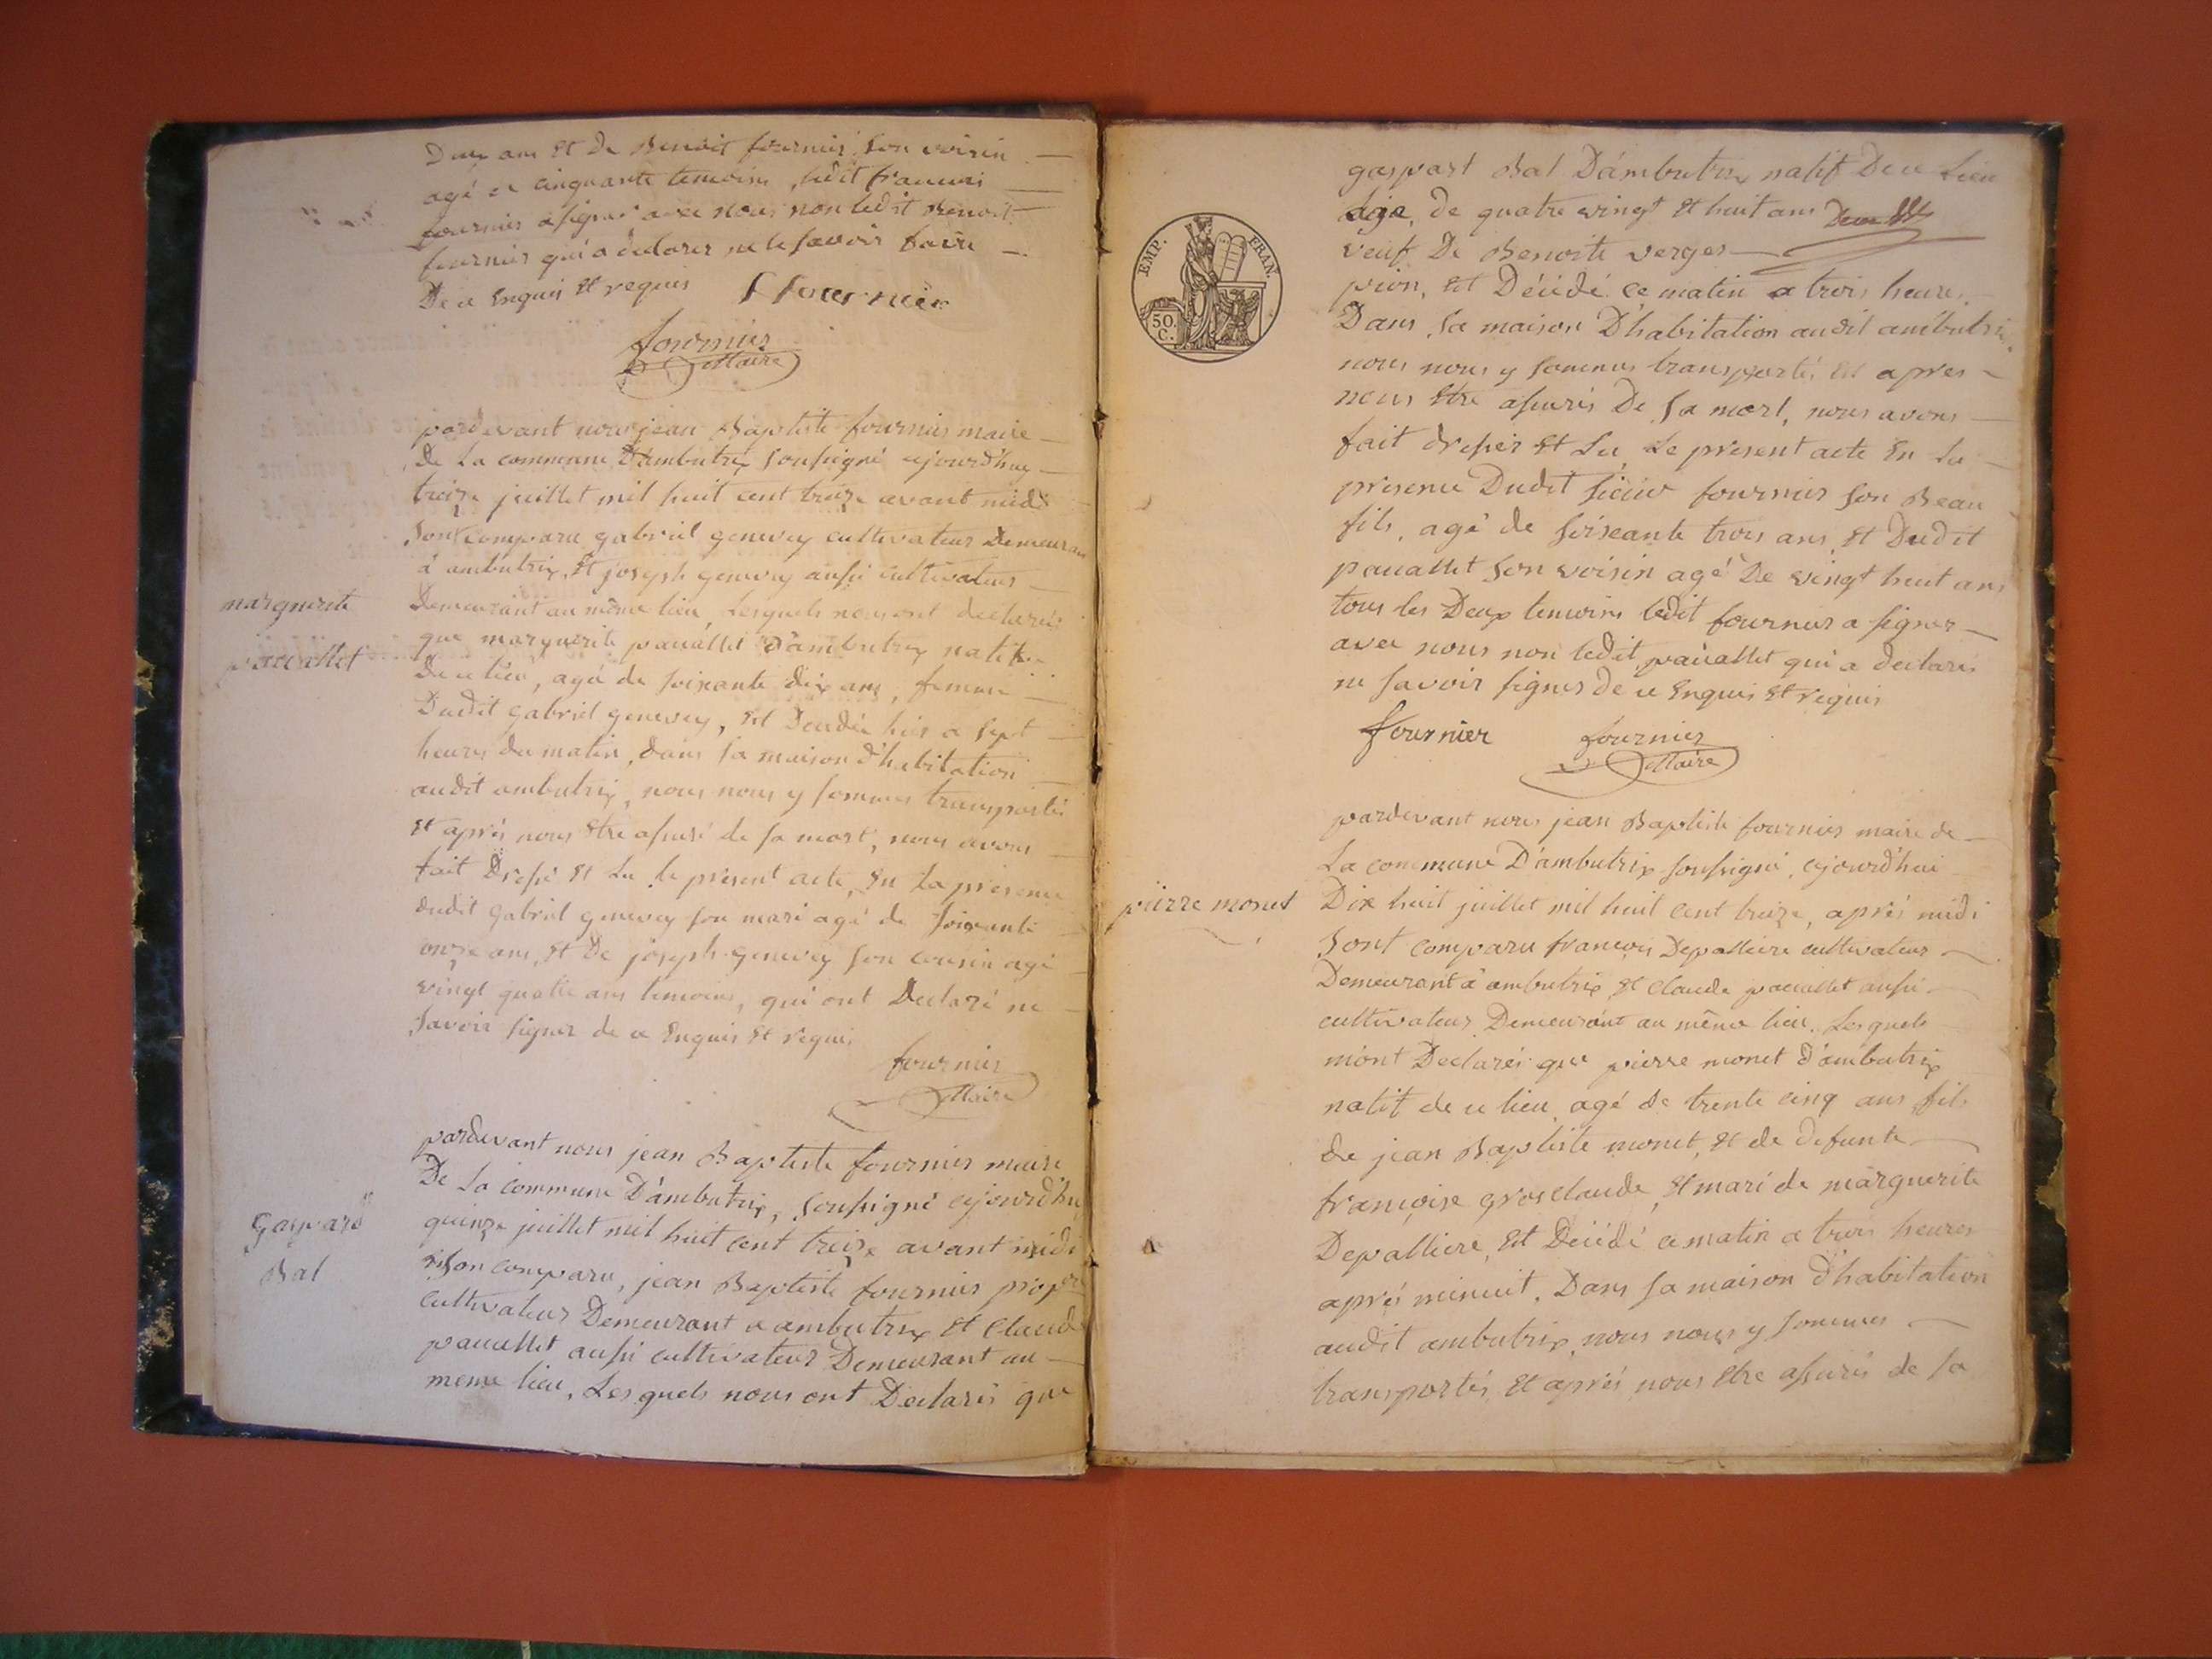 Deux ans et de Benoit fournier son voisin
agé de cinquante temoins, ledit francois
fournier a signer avec nous non ledit Benoit
fournier qui a declarer ne le savoir faire
De ce Enquis et requis ffournier
fournier
Maire
marguerite
pauallet
pardevant nous jean Baptiste fournier maire
de La commune D'ambutrix soussigné cejourd'huy
treize juillet mil huit cent treize avant midi
Sont comparu gabriel genevey cultivateur Demeurant
à ambutrix, et joseph genevey aussi cultivateur
Demeurant au même lieu Lesquels nous ont declarés
que marguerite pauallet D'ambutrix natif
de ce lieu, agé de soixante dix ans, femme
Dudit gabriel genevey, est Decedée hier a sept
heures du matin, dans sa maison d'habitation
audit ambutrix, nous nous y sommes transportés
et aprés nous être assuré de sa mort, nous avons
fait Dressé et Lu le present acte, En la presence
dudit gabriel genevey son mari agé de soixante
onze ans, et De joseph genevey son cousin agé
vingt quatre ans temoins, qui ont Declaré ne
savoir signer de ce Enquis et requis
fournier
Maire
Gaspard
Bal
pardevant nous jean Baptiste fournier maire
De La commune D'ambutrix, soussigné cejourd'hu
quinze juillet mil huit cent treize avant midi
Son comparu, jean Baptiste fournier propre
cultivateur Demeurant a ambutrix et Claude
pauallet aussi cultivateur Demeurant au
meme lieu, Lesquels nous ont Declarés que
EMP. FRAN.
50 C.
gaspart Bal D'ambutrix natif De ce Lieu
agé, de quatre vingt et huit ans
veuf De Benoite verger
pion, est Décédé ce matin a trois heures
Dans sa maison D'habitation audit ambutrix
nous nous y sommes transportés Et apres
nous être assurés De sa mort, nous avons
fait dresser et Lu Le present acte En La
presence Dudit sieur fournier son Beau
fils, agé de soixante trois ans, et Dudit
pauallet son voisin agé De vingt huit ans
tous les Deux temoins ledit fournier a signer
avec nous non ledit pauallet qui a declarer
ne savoir signer de ce Enquis et requis
fournier fournier
Maire
pierre monet
pardevant nous jean Baptiste fournier maire de
La commune D'ambutrix soussigné, cejourd'hui
Dix huit juillet mil huit Cent treize, aprés midi
Sont comparu francois Depalliere cultivateur
Demeurant à ambutrix et Claude pauallet aussi
cultivateur Demeurant au même lieu. Lesquels
m'ont Declarés que pierre monet d'ambutrix
natif de ce lieu agé de trente cinq ans fils
de jean Baptiste monet, et de defunte
françoise gros claude, et mari de marguerite
Depalliere, est Décédé ce matin a trois heures
aprés minuit, Dans sa maison d'habitation
audit ambutrix, nous nous y sommes
transportés, et aprés nous être assurés de sa